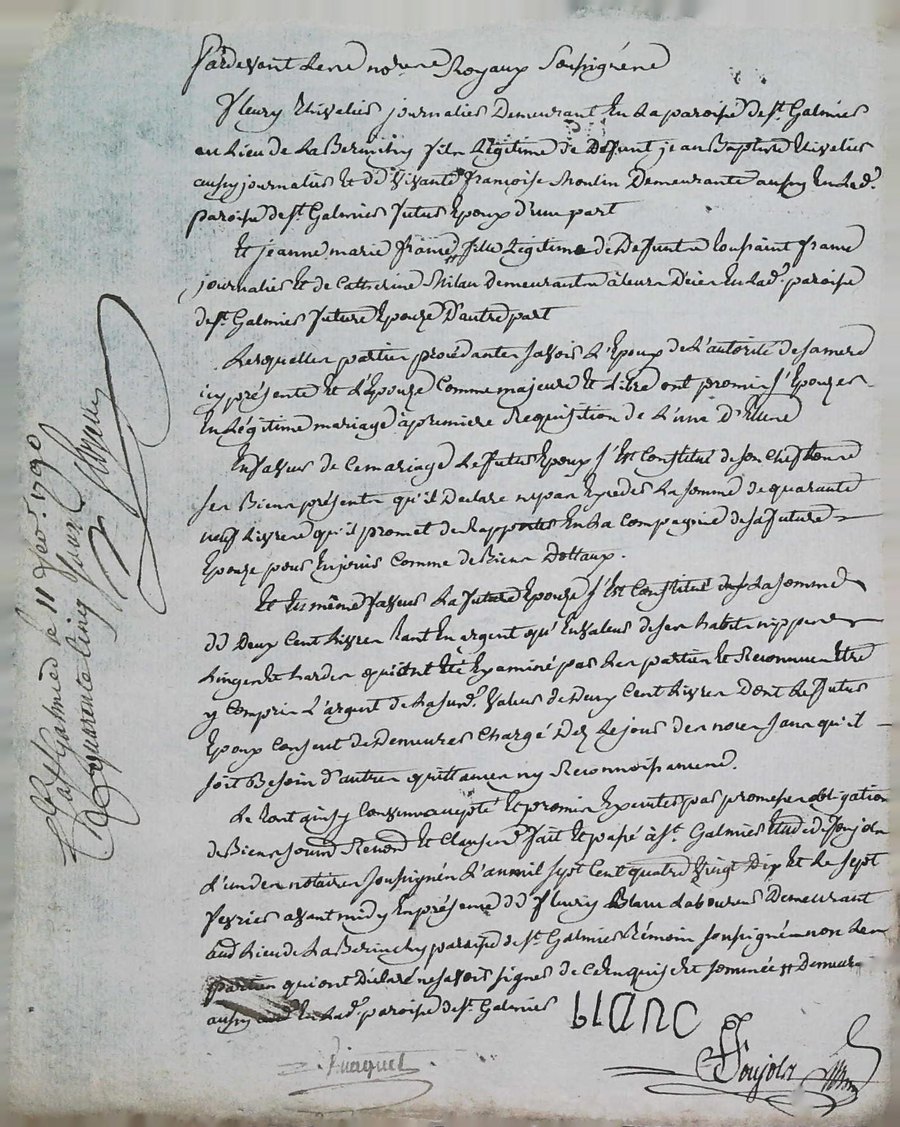 Pardevant les notaires Royaux Soussignés
Fleury Thivelier journalier Demeurant En la paroisse de St. Galmier
au Lieu de La Berinchy fils Légitime de Défunt jean Baptiste Thivelier
aussy journalier Et de Vivante françoise Moulin Demeurante aussy En lad.
paroisse de St. Galmier futur Epoux d'une part
Et jeanne marie france fille Légitime de Defunt Toussaint france
journalier Et de Catherine Milan Demeurante En lad. paroisse
de St. Galmier future Epouze D'autre part
Lesquelles parties procédantes savoir L'Epoux de L'autorité de sa mere
icy présente Et L'Epouze Comme majeure Et Libre ont promis s'Epouzer
En Légitime mariage à première Requisition de L'une D'Elles
En faveur de Ce mariage Le futur Epoux s'Est Constitué de son Chef tous
ses Biens présents qu'il Declare ne pas Exceder La somme de quarante
neuf Livres qu'il promet de Rapporter En La Compagnie de sa future
Epouze pour En jouir Comme de Biens Dottaux.
Et En même faveur La future Epouze s'Est Constitué La somme
de Deux Cent Livres tant En argent qu'En valeur de ses habits nippes
Linges Et hardes qui ont Eté Examiné par Les parties Et Reconnus Etre
y Compris L'argent de La susd. Valeur de Deux Cent Livres Dont Le futur
Epoux Consent de Demeurer Chargé Dez Le jour des noces sans qu'il
soit Besoin d'autres quittances ny Reconnoissances.
Le tout ainsy Convenu accepté Et promis Executer par promesse obligation
de Biens soumis Renond. Et Clauses. fait Et passé à St. Galmier Etude de Poujola
L'un des notaires soussignés L'an mil sept Cent quatre Vingt Dix Et Le sept
fevrier avant midy En présence de Fleury Blanc Laboureur Demeurant
aud. Lieu de La Berinchy paroisse de St. Galmier Témoin soussigné non Les
parties qui ont Déclaré ne savoir signer de Ce Enquis Et sommée Demeur.
aussy En Lad. paroisse de St. Galmier
blanc
Poujola
à St Galmier Le 11 fevr. 1790
quarante cinq sous